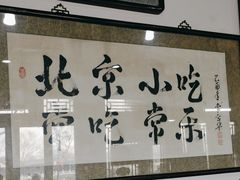 北京小吃
常吃常乐
乙酉